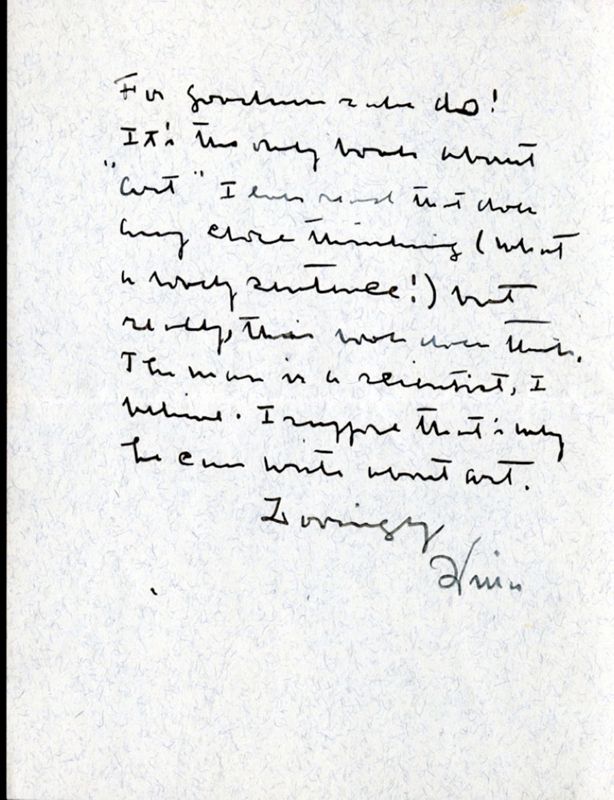 For goodness sake do!
It's the only book about
"art" I ever read that does
any close thinking (what
a lovely sentence!) but
really, this book does think.
The man is a scientist, I
believe. I suppose that's why
he can write about art.
Lovingly